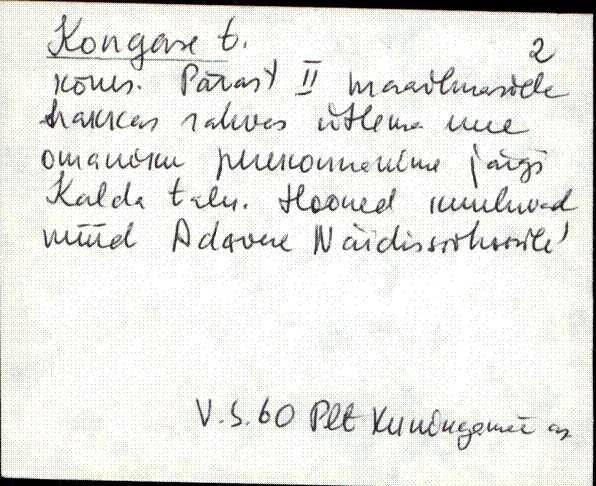 Kongase t. 2
kõnes. Pärast II maailmasõda
hakkas rahvas ütlema uue
omaniku perekonnanime järgi
Kalda talu. Hooned kuuluvad
nüüd Adavere Näidissovhoosile
V.S. 60 Plt Kuningamäe as